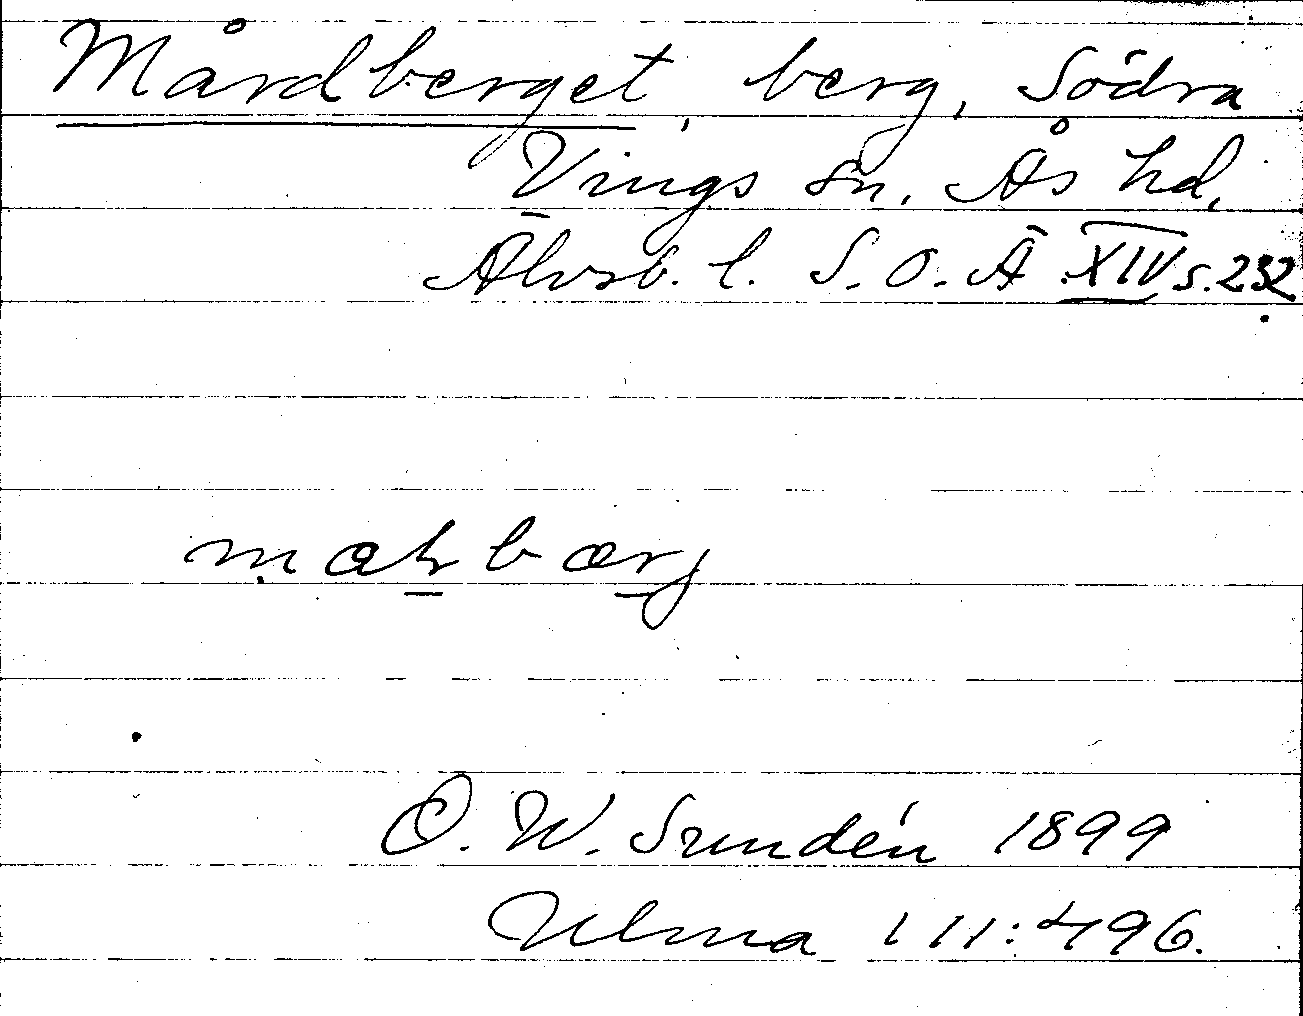 Mårdberget, berg, Södra
Vings sn, Ås hd,
Älvsb. l. S. O. Ä XIV s. 232
O. W. Sundén 1899
Ulma 111:496.